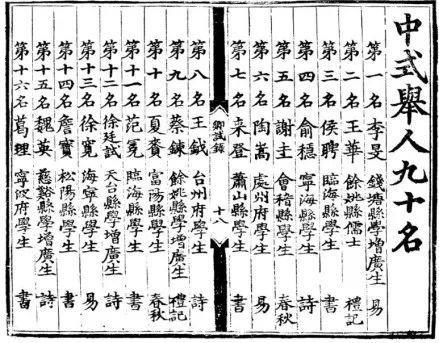 中式舉人九十名
第一名李旻 錢塘縣學增廣生 易
第二名王華 餘姚縣儒士 禮記
第三名侯聘 臨海縣學生 書
第四名俞穩 寧海縣學生 詩
第五名謝圭 會稽縣學生 春秋
第六名陶嵩 處州府學生 易
第七名來登 蕭山縣學生 書
鄉試錄
十八
第八名王鉞 台州府學生 詩
第九名蔡鍊 餘姚縣學增廣生 禮記
第十名夏賚 富陽縣學生 春秋
第十一名范冕 臨海縣學生 書
第十二名徐廷試 天台縣學增廣生 詩
第十三名徐寬 海寧縣學生 易
第十四名詹寶 松陽縣學生 書
第十五名魏英 慈谿縣學增廣生 詩
第十六名葛理 寧波府學生 書